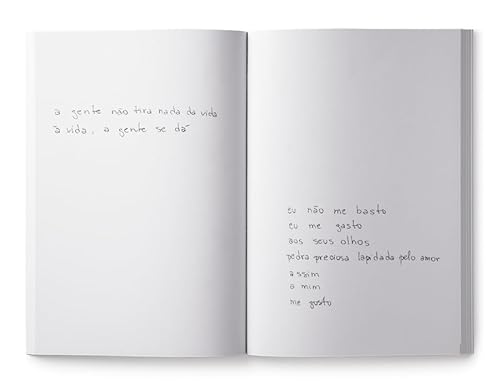 a gente não tira nada da vida
à vida, a gente se dá
eu não me basto
eu me gasto
aos seus olhos
pedra preciosa lapidada pelo amor
assim
a mim
me gusto